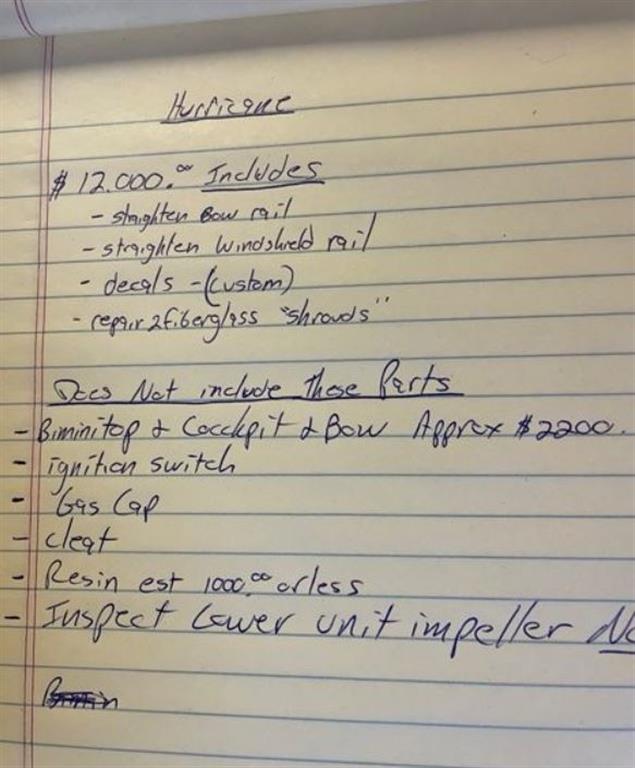 Hurricane
$ 12.000.00 Includes
- staighten Bow rail
- straighten Windshield rail
- decals - (custom)
- repair 2 fiberglass "shrouds"
Does Not include these Parts
- Biminitop & Cockpit & Bow Approx $2200.
- ignition switch
- Gas Cap
- cleat
- Resin est 1000.00 or less
- Inspect Lower unit impeller